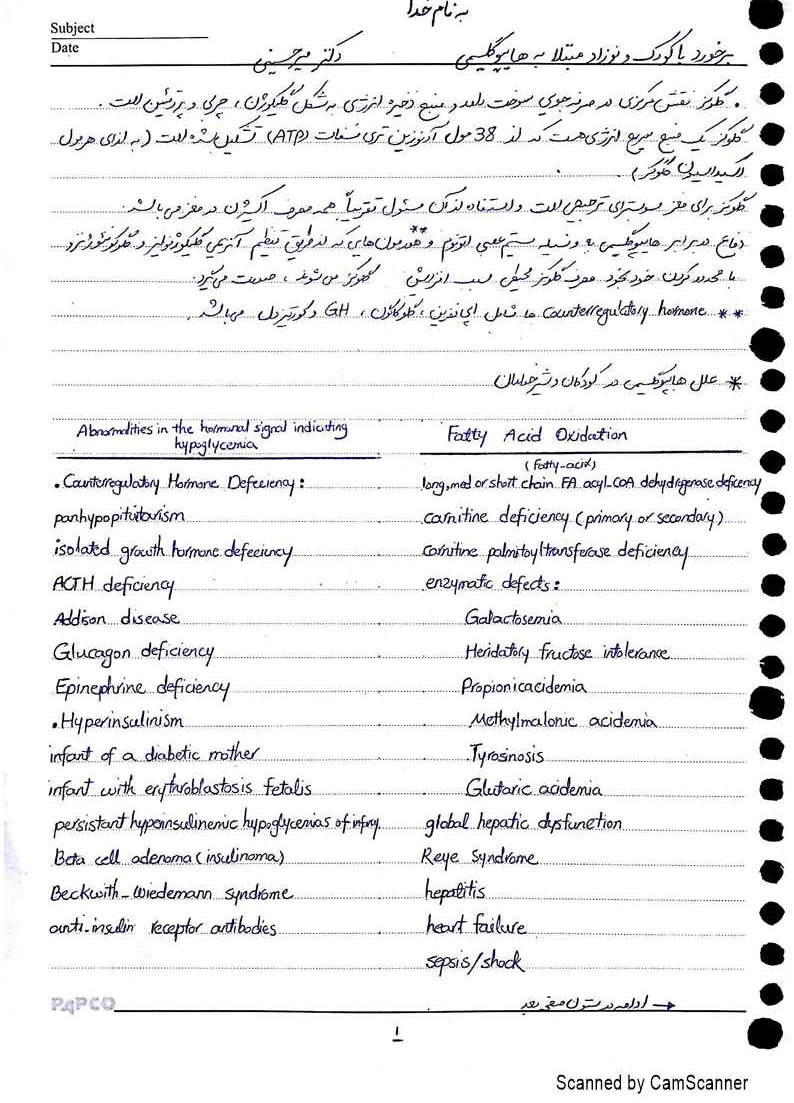 به نام خدا
Subject
Date
برخورد با کودک و نوزاد مبتلا به هایپوگلیسمی دکتر میرحسینی
• گلوکز نقش مرکزی در صرفه جویی سوخت دارد و منبع ذخیره انرژی به شکل گلیکوژن، چربی و پروتئین است.
گلوکز یک منبع سریع انرژی هست که از 38 مول آدنوزین تری فسفات (ATP) تشکیل شده است (به ازای هر مول
اکسیداسیون گلوکز).
گلوکز برای مغز سوبسترای ترجیحی است و استفاده از آن مسئول تقریباً همه مصرف اکسیژن در مغز می باشد.
دفاع در برابر هایپوگلیسمی به وسیله سیستم عصبی اتونوم و **هورمون هایی که از طریق تنظیم آنزیمی گلیکوژنولیز و گلوکونئوژنز و
با محدود کردن خودبخود مصرف گلوکز محیطی سبب افزایش گلوکز می شوند، صورت می گیرد.
** counterregulatory hormone ها شامل اپی نفرین، گلوکاگون، GH و کورتیزول می باشد.
* علل هایپوگلیسمی در کودکان و شیرخواران
Abnormalities in the hormonal signal indicating
hypoglycemia
• Counterregulatory Hormone Defeciency:
panhypopituitarism
isolated growth hormone defeciency
ACTH deficiency
Addison disease
Glucagon deficiency
Epinephrine deficiency
• Hyperinsulinism
infant of a diabetic mother
infant with erythroblastosis fetalis
persistant hypeinsulinemic hypoglycemias of infancy
Beta cell adenoma (insulinoma)
Beckwith-Wiedemann syndrome
anti-insulin receptor antibodies
Fatty Acid Oxidation
(fatty-acid)
long, med or short chain FA acyl-COA dehydrgenase deficency
carnitine deficiency (primary or secondary)
carnitine palmitoyltransferase deficiency
enzymatic defects:
Galactosemia
Heridatory fructose intolerance
Propionicacidemia
Methylmalonic acidemia
Tyrosinosis
Glutaric acidemia
global hepatic dysfunction
Reye Syndrome
hepatitis
heart failure
sepsis/shock
← ادامه در ستون صفحه بعد
PAPCO
۱
Scanned by CamScanner